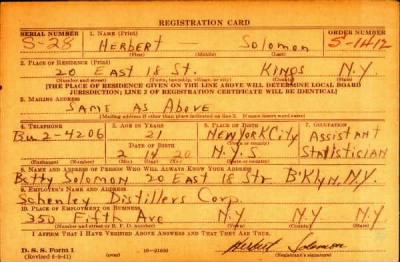 REGISTRATION CARD
SERIAL NUMBER 1. NAME (Print) ORDER NUMBER
S-28 HERBERT Solomon S-1412
(First) (Middle) (Last)
2. PLACE OF RESIDENCE (Print)
20 EAST 18 St. KINGS N.Y.
(Number and street) (Town, township, village, or city) (County) (State)
[THE PLACE OF RESIDENCE GIVEN ON THE LINE ABOVE WILL DETERMINE LOCAL BOARD
JURISDICTION; LINE 2 OF REGISTRATION CERTIFICATE WILL BE IDENTICAL]
3. MAILING ADDRESS
SAME AS ABOVE
[Mailing address if other than place indicated on line 2. If same insert word same]
4. TELEPHONE 5. AGE IN YEARS 6. PLACE OF BIRTH 7. OCCUPATION
Bu 2-4206 21 NEW YORK CITY ASSISTANT
DATE OF BIRTH (Town or county)
2 14 20 N.Y.S. STATISTICIAN
(Exchange) (Number) (Mo.) (Day) (Yr.) (State or country)
8. NAME AND ADDRESS OF PERSON WHO WILL ALWAYS KNOW YOUR ADDRESS
Betty Solomon 20 EAST 18 Str B'KLYN, N.Y.
9. EMPLOYER'S NAME AND ADDRESS
Schenley Distillers Corp.
10. PLACE OF EMPLOYMENT OR BUSINESS
350 Fifth Ave N.Y N.Y N.Y.
(Number and street or R. F. D. number) (Town) (County) (State)
I AFFIRM THAT I HAVE VERIFIED ABOVE ANSWERS AND THAT THEY ARE TRUE.
D. S. S. Form 1 Herbert Solomon
(Revised 6-9-41) (over) (Registrant's signature)